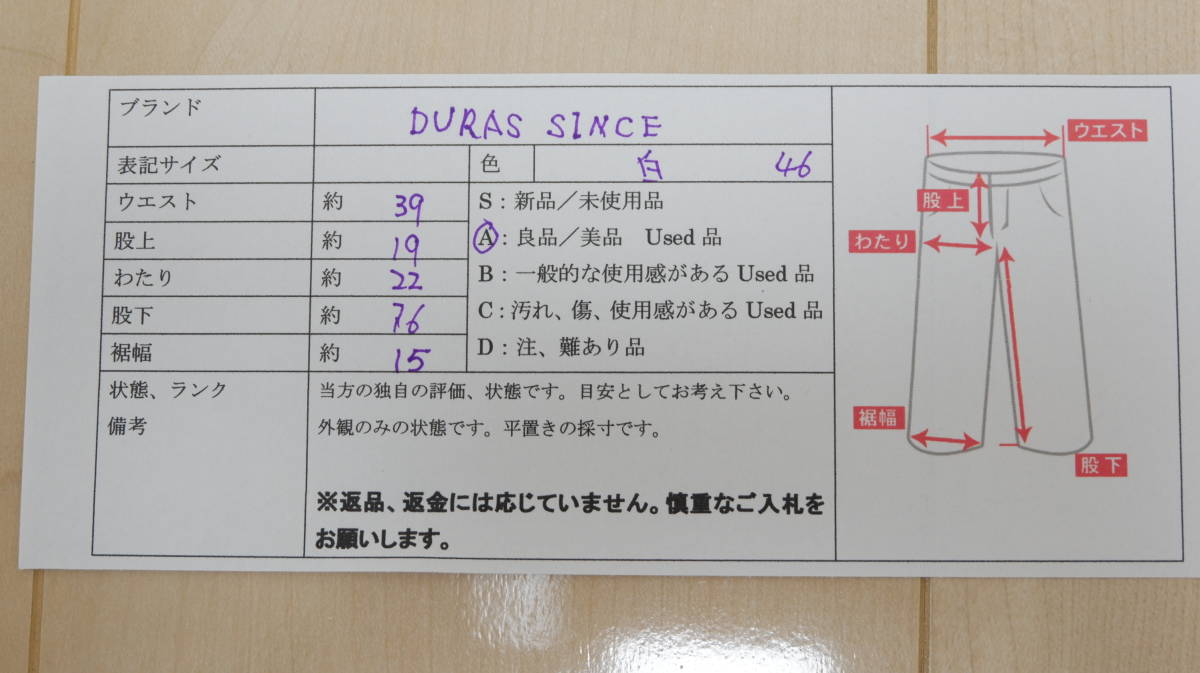 ブランド DURAS SINCE
表記サイズ 色 白 46
ウエスト 約 39
股上 約 19
わたり 約 22
股下 約 76
裾幅 約 15
S：新品／未使用品
A：良品／美品 Used 品
B：一般的な使用感がある Used 品
C：汚れ、傷、使用感がある Used 品
D：注、難あり品
状態、ランク
備考
当方の独自の評価、状態です。目安としてお考え下さい。
外観のみの状態です。平置きの採寸です。
※返品、返金には応じていません。慎重なご入札を
お願いします。
ウエスト
股上
わたり
裾幅
股下